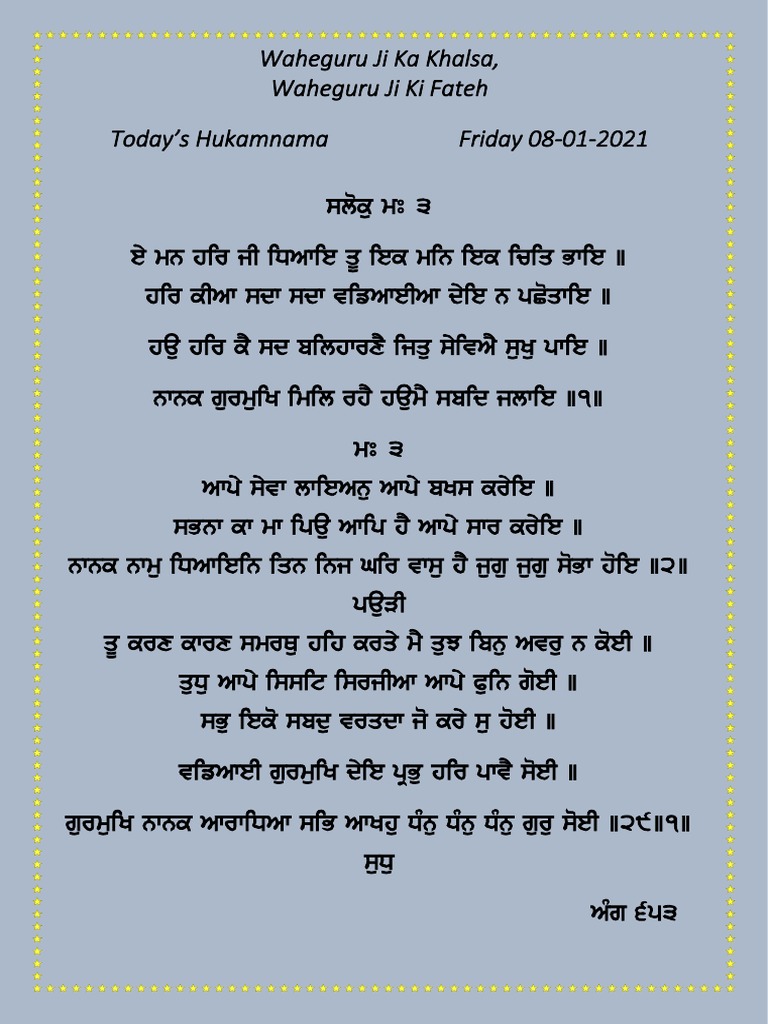 Waheguru Ji Ka Khalsa,
Waheguru Ji Ki Fateh
Today's Hukamnama Friday 08-01-2021
ਸਲੋਕੁ ਮਃ ੩
ਏ ਮਨ ਹਰਿ ਜੀ ਧਿਆਇ ਤੂ ਇਕ ਮਨਿ ਇਕ ਚਿਤਿ ਭਾਇ ॥
ਹਰਿ ਕੀਆ ਸਦਾ ਸਦਾ ਵਡਿਆਈਆ ਦੇਇ ਨ ਪਛੋਤਾਇ ॥
ਹਉ ਹਰਿ ਕੈ ਸਦ ਬਲਿਹਾਰਣੈ ਜਿਤੁ ਸੇਵਿਐ ਸੁਖੁ ਪਾਇ ॥
ਨਾਨਕ ਗੁਰਮੁਖਿ ਮਿਲਿ ਰਹੈ ਹਉਮੈ ਸਬਦਿ ਜਲਾਇ ॥੧॥
ਮਃ ੩
ਆਪੇ ਸੇਵਾ ਲਾਇਅਨੁ ਆਪੇ ਬਖਸ ਕਰੇਇ ॥
ਸਭਨਾ ਕਾ ਮਾ ਪਿਉ ਆਪਿ ਹੈ ਆਪੇ ਸਾਰ ਕਰੇਇ ॥
ਨਾਨਕ ਨਾਮੁ ਧਿਆਇਨਿ ਤਿਨ ਨਿਜ ਘਰਿ ਵਾਸੁ ਹੈ ਜੁਗੁ ਜੁਗੁ ਸੋਭਾ ਹੋਇ ॥੨॥
ਪਉੜੀ
ਤੂ ਕਰਣ ਕਾਰਣ ਸਮਰਥੁ ਹਹਿ ਕਰਤੇ ਮੈ ਤੁਝ ਬਿਨੁ ਅਵਰੁ ਨ ਕੋਈ ॥
ਤੁਧੁ ਆਪੇ ਸਿਸਟਿ ਸਿਰਜੀਆ ਆਪੇ ਫੁਨਿ ਗੋਈ ॥
ਸਭੁ ਇਕੋ ਸਬਦੁ ਵਰਤਦਾ ਜੋ ਕਰੇ ਸੁ ਹੋਈ ॥
ਵਡਿਆਈ ਗੁਰਮੁਖਿ ਦੇਇ ਪ੍ਰਭੁ ਹਰਿ ਪਾਵੈ ਸੋਈ ॥
ਗੁਰਮੁਖਿ ਨਾਨਕ ਆਰਾਧਿਆ ਸਭਿ ਆਖਹੁ ਧੰਨੁ ਧੰਨੁ ਧੰਨੁ ਗੁਰੁ ਸੋਈ ॥੨੯॥੧॥
ਸੁਧੁ
ਅੰਗ ੬੫੩